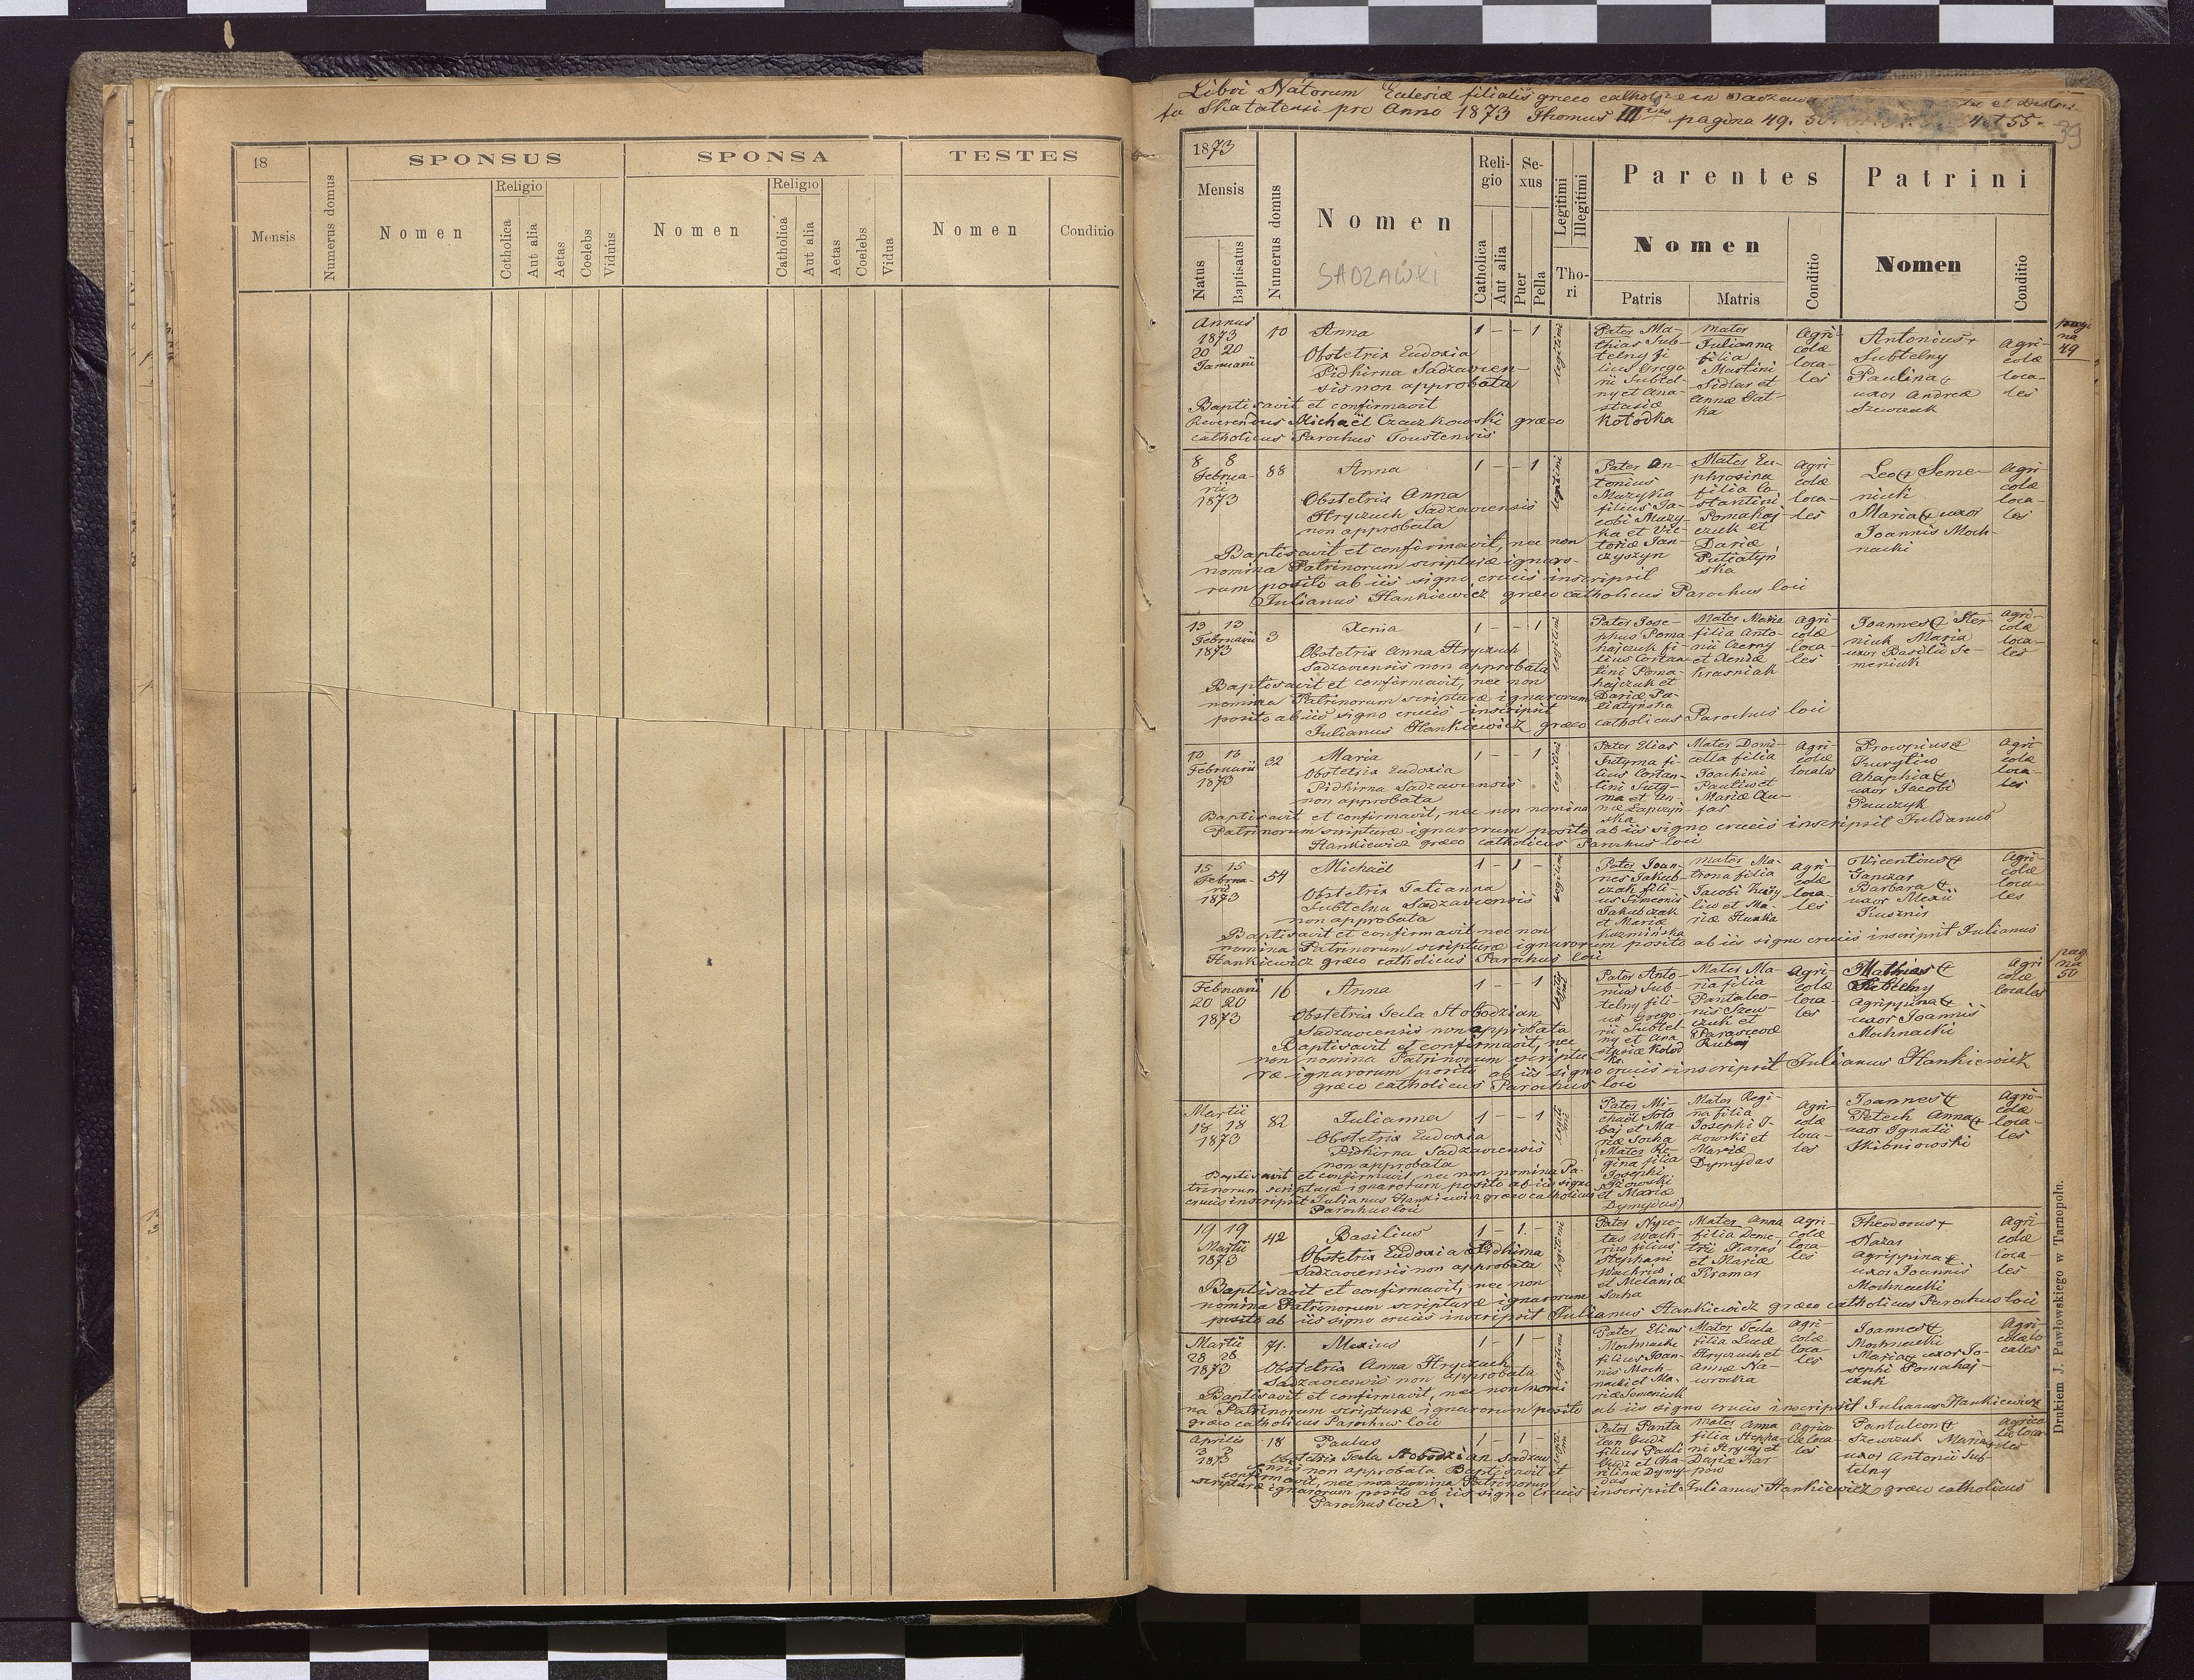 18
SPONSUS
SPONSA
TESTES
Mensis
Numerus domus
Nomen
Religio
Catholica
Aut alia
Aetas
Coelebs
Viduus
Nomen
Religio
Catholica
Aut alia
Aetas
Coelebs
Vidua
Nomen
Conditio
Libri Natorum Ecclesiæ filialis græco catholicæ in Sadzawa
tu Skalatensi pro Anno 1873 Thomus III pagina 49. 50 et 55
39
1873
Mensis
Natus
Baptisatus
Numerus domus
Nomen
SADZAWKI
Religio
Catholica
Aut alia
Sexus
Puer
Pella
Legitimi
Illegitimi
Thori
Parentes
Nomen
Patris
Matris
Conditio
Patrini
Nomen
Conditio
Annus
1873
20 20
Januarii
10
Anna
Obstetrix Eudoxia
Pidhirna Sadzavien-
sis non approbata
Baptisavit et confirmavit
Reverendus Michaël Czaczkowski græco
catholicus Parochus Toustensis
1 - - 1
legitimi
Pater Ma-
thias Sub-
telny fi
lius Grego
rii Subtel-
ny et Ana-
stasiæ
Kołodka
Mater
Julianna
filia
Martini
Sidlar et
Annæ Gat-
ka
Agri-
colæ
loca-
les
Antonius +
Subtelny
Paulina +
uxor Andreæ
Szewczuk
Agri-
colæ
loca-
les
pagi
na
49
8 8
Februa-
rii
1873
88
Anna
Obstetrix Anna
Hryczuch Sadzaviensis
non approbata
Baptisavit et confirmavit, nec non
nomina Patrinorum scripturæ ignaro-
rum posito ab iis signo crucis inscripsit
Julianus Hankiewicz græco catholicus Parochus loci
1 - - 1
legitimi
Pater An-
tonius
Muzyka
filius Ja-
cobi Muzy-
ka et Vic-
toriæ Jan-
czyszyn
Mater Eu-
phrosina
filia Co-
stantini
Pomahaj-
czuk et
Dariæ
Putiatyń
ska
Agri-
colæ
loca-
les
Leo + Seme-
niuk
Maria + uxor
Joannis Moch-
nacki
Agri
colæ
loca-
les
13 13
Februarii
1873
3
Xenia
Obstetrix Anna Hryczuch
Sadzaviensis non approbata
Baptisavit et confirmavit, nec non
nomina Patrinorum scripturæ ignarorum
posito ab iis signo crucis inscripsit
Julianus Hankiewicz græco catholicus Parochus loci
1 - - 1
legitimi
Pater Jose-
phus Poma-
hajczuk fi-
lius Costan
tini Poma-
hajczuk et
Dariæ Pu-
tiatynska
Mater Maria
filia Anto-
nii Czerny
et Xeniæ
Krasniak
Agri-
colæ
loca-
les
Joannes + Ster
niuk Maria
uxor Basilii Se-
meniuk
Agri-
colæ
loca-
les
Februarii
1873
32
Maria
Obstetrix Eudoxia
Pidhirna Sadzaviensis
non approbata
Baptisavit et confirmavit, nec non nomina
Patrinorum scripturæ ignarorum posito ab iis signo crucis inscripsit Julianus
Hankiewicz græco catholicus Parochus loci
1 - - 1
legitimi
Pater Elias
fi-
lius Costan-
tini
ma et An-
næ Zapczyn-
ska
Mater Domi-
cella filia
Joachimi
Pauliw et
Mariæ
Agri-
colæ
locales
Procopius +
Kuryliw
Ahaphia +
uxor Jacobi
Agri-
colæ
loca-
les
15 15
Februa-
rii
1873
54
Michaël
Obstetrix Tatianna
Subtelna Sadzaviensis
non approbata
Baptisavit et confirmavit nec non
nomina Patrinorum scripturæ ignarorum posito ab iis signo crucis inscripsit Julianus
Hankiewicz græco catholicus Parochus loci
1 - 1 -
legitimi
Pater Joan-
nes Jakub-
czak fili-
us Simeonis
Jakubczak
et Mariæ
Kuzmińska
Mater Ma-
trona filia
Jacobi Kury
liw et Ma-
riæ Hucka
Agri-
colæ
loca-
les
Vicentius +
Ganczar
Barbara +
uxor Alexii
Kusznir
Agri-
colæ
loca-
les
pagi
na
50
Februarii
20 20
1873
16
Anna
Obstetrix Tecla Stobodzian
Sadzaviensis non approbata
Baptisavit et confirmavit, nec
non nomina Patrinorum scriptu
ræ ignarorum posito ab iis signo crucis inscripsit Julianus Hankiewicz
græco catholicus Parochus loci
1 - - 1
legiti
mi
Pater Anto-
nius Sub-
telny fili-
us Grego-
rii Subtel-
ny et Ana
stasiæ Kołod
ka
Mater Ma-
ria filia
Pantaleo-
nis Szew-
czuk et
Parascevæ
Rubaj
Agri-
colæ
loca-
les
Mathias +
Subtelny
Agrippina +
uxor Joannis
Mochnacki
Agri
colæ
locales
Martii
18 18
1873
82
Julianna
Obstetrix Eudoxia
Pidhirna Sadzaviensis
non approbata
Baptisavit et confirmavit, nec non nomina Pa-
trinorum scripturæ ignarorum posito ab iis signo
crucis inscripsit Julianus Hankiewicz græco catholicus
Parochus loci
1 - - 1
legiti
mi
Pater Mi-
chaël Soto
baj et Ma-
riæ Socha
(Mater Re-
gina filia
Josephi
et Mariæ
Dymydas)
Mater Regi-
na filia
Josephi
zowski et
Mariæ
Dymydas
Agri-
colæ
loca-
les
Joannes +
Petech Anna +
uxor Ignatii
Skibniowski
Agri-
colæ
loca-
les
19 19
Martii
1873
42
Basilius
Obstetrix Eudoxia Pidhirna
Sadzaviensis non approbata
Baptisavit et confirmavit, nec non
nomina Patrinorum scripturæ ignarorum
posito ab iis signo crucis inscripsit Julianus Hankiewicz græco catholicus Parochus loci
1 - 1 -
legitimi
Pater Nyce-
tas Wach-
riw filius
Stephani
Wachriw
et Melaniæ
Socha
Mater Anna
filia Deme-
trii Karas
et Mariæ
Kramar
Agri-
colæ
loca-
les
Theodorus +
Nazar
Agrippina +
uxor Joannis
Mochnacki
Agri-
colæ
loca-
les
Martii
28 28
1873
71.
Alexius
Obstetrix Anna Hryczuch
Sadzaviensis non approbata
Baptisavit et confirmavit, nec non nomi
na Patrinorum scripturæ ignarorum posito ab iis signo crucis inscripsit Julianus Hankiewicz
græco catholicus Parochus loci
1 - 1 -
legitimi
Pater Elias
Mochnacki
filius Joan-
nis Moch-
nacki et Ma-
riæ Semeniuk
Mater Tecla
filia Lucæ
Hryczuch et
Annæ Na-
wrocka
Agri-
colæ
loca-
les
Joannes +
Mochnacki
Maria + uxor Jo-
sephi Pomahaj-
czuk
Agri-
colæ lo
cales
Aprilis
3 3
1873
18
Paulus
Obstetrix Tecla Stobodzian Sadzavi
ensis non approbata Baptisavit et
confirmavit, nec non nomina Patrinorum
scripturæ ignarorum posito ab iis signo crucis inscripsit Julianus Hankiewicz græco catholicus
Parochus loci.
1 - 1 -
legiti
mi
Pater Panta
leon Gudz
filius Pauli
Gudz et Cha
ritinæ Dymy-
das
Mater Anna
filia Stepha-
ni Hrycaj et
Dariæ Kar
pow
Agrico-
læ loca-
les
Pantaleon +
Szewczuk Maria +
uxor Antonii Sub-
telny
Agrico
læ loca
les
Drukiem J. Pawłowskiego w Tarnopolu.